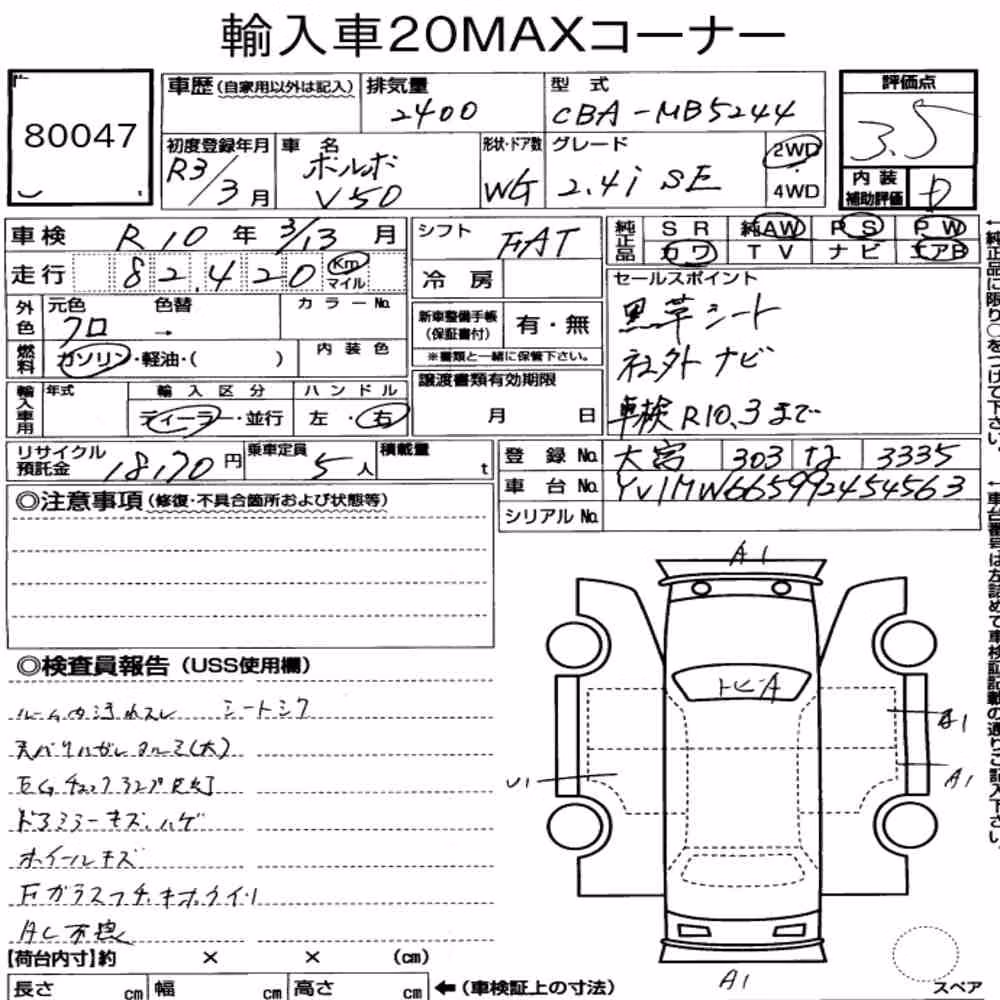 輸入車20MAXコーナー
80047
車歴 (自家用以外は記入) 排気量 2400 型式 CBA-MB5244
評価点 3.5
初度登録年月 R3/3月 車名 ボルボ V50 形状・ドア数 WG グレード 2.4i SE 2WD 4WD
内装補助評価 D
車検 R10年 3/13月 シフト FAT
純正品 SR 純AW PS PW
カワ TV ナビ エアB
走行 82,420 Km マイル 冷房
セールスポイント
外色 元色 クロ 色替 → カラーNo.
新車整備手帳(保証書付) 有・無
※書類と一緒に保管下さい。
黒革シート
社外ナビ
車検R10.3まで
燃料 ガソリン・軽油・( ) 内装色
輸入車用 年式 輸入区分 ディーラー・並行 ハンドル 左・右
譲渡書類有効期限 月 日
リサイクル預託金 18170円 乗車定員 5人 積載量 t
登録No. 大宮 303 3335
車台No. YV1MW665992454563
シリアルNo.
←純正品に限り○をつけて下さい。
←車台番号は左詰めで車検証記載の通りご記入下さい。
◎注意事項 (修復・不具合箇所および状態等)
◎検査員報告 (USS使用欄)
ルーム内汚れスレ シートシワ
天バリハガレタルミ(大)
EGチェックランプ点灯
ドアミラーキズ、ハゲ
ホイールキズ
Fガラスフチ
AC不良
A1
トビA
A1
A1
U1
A1
スペア
【荷台内寸】約 × × (cm)
長さ cm 幅 cm 高さ cm ←(車検証上の寸法)